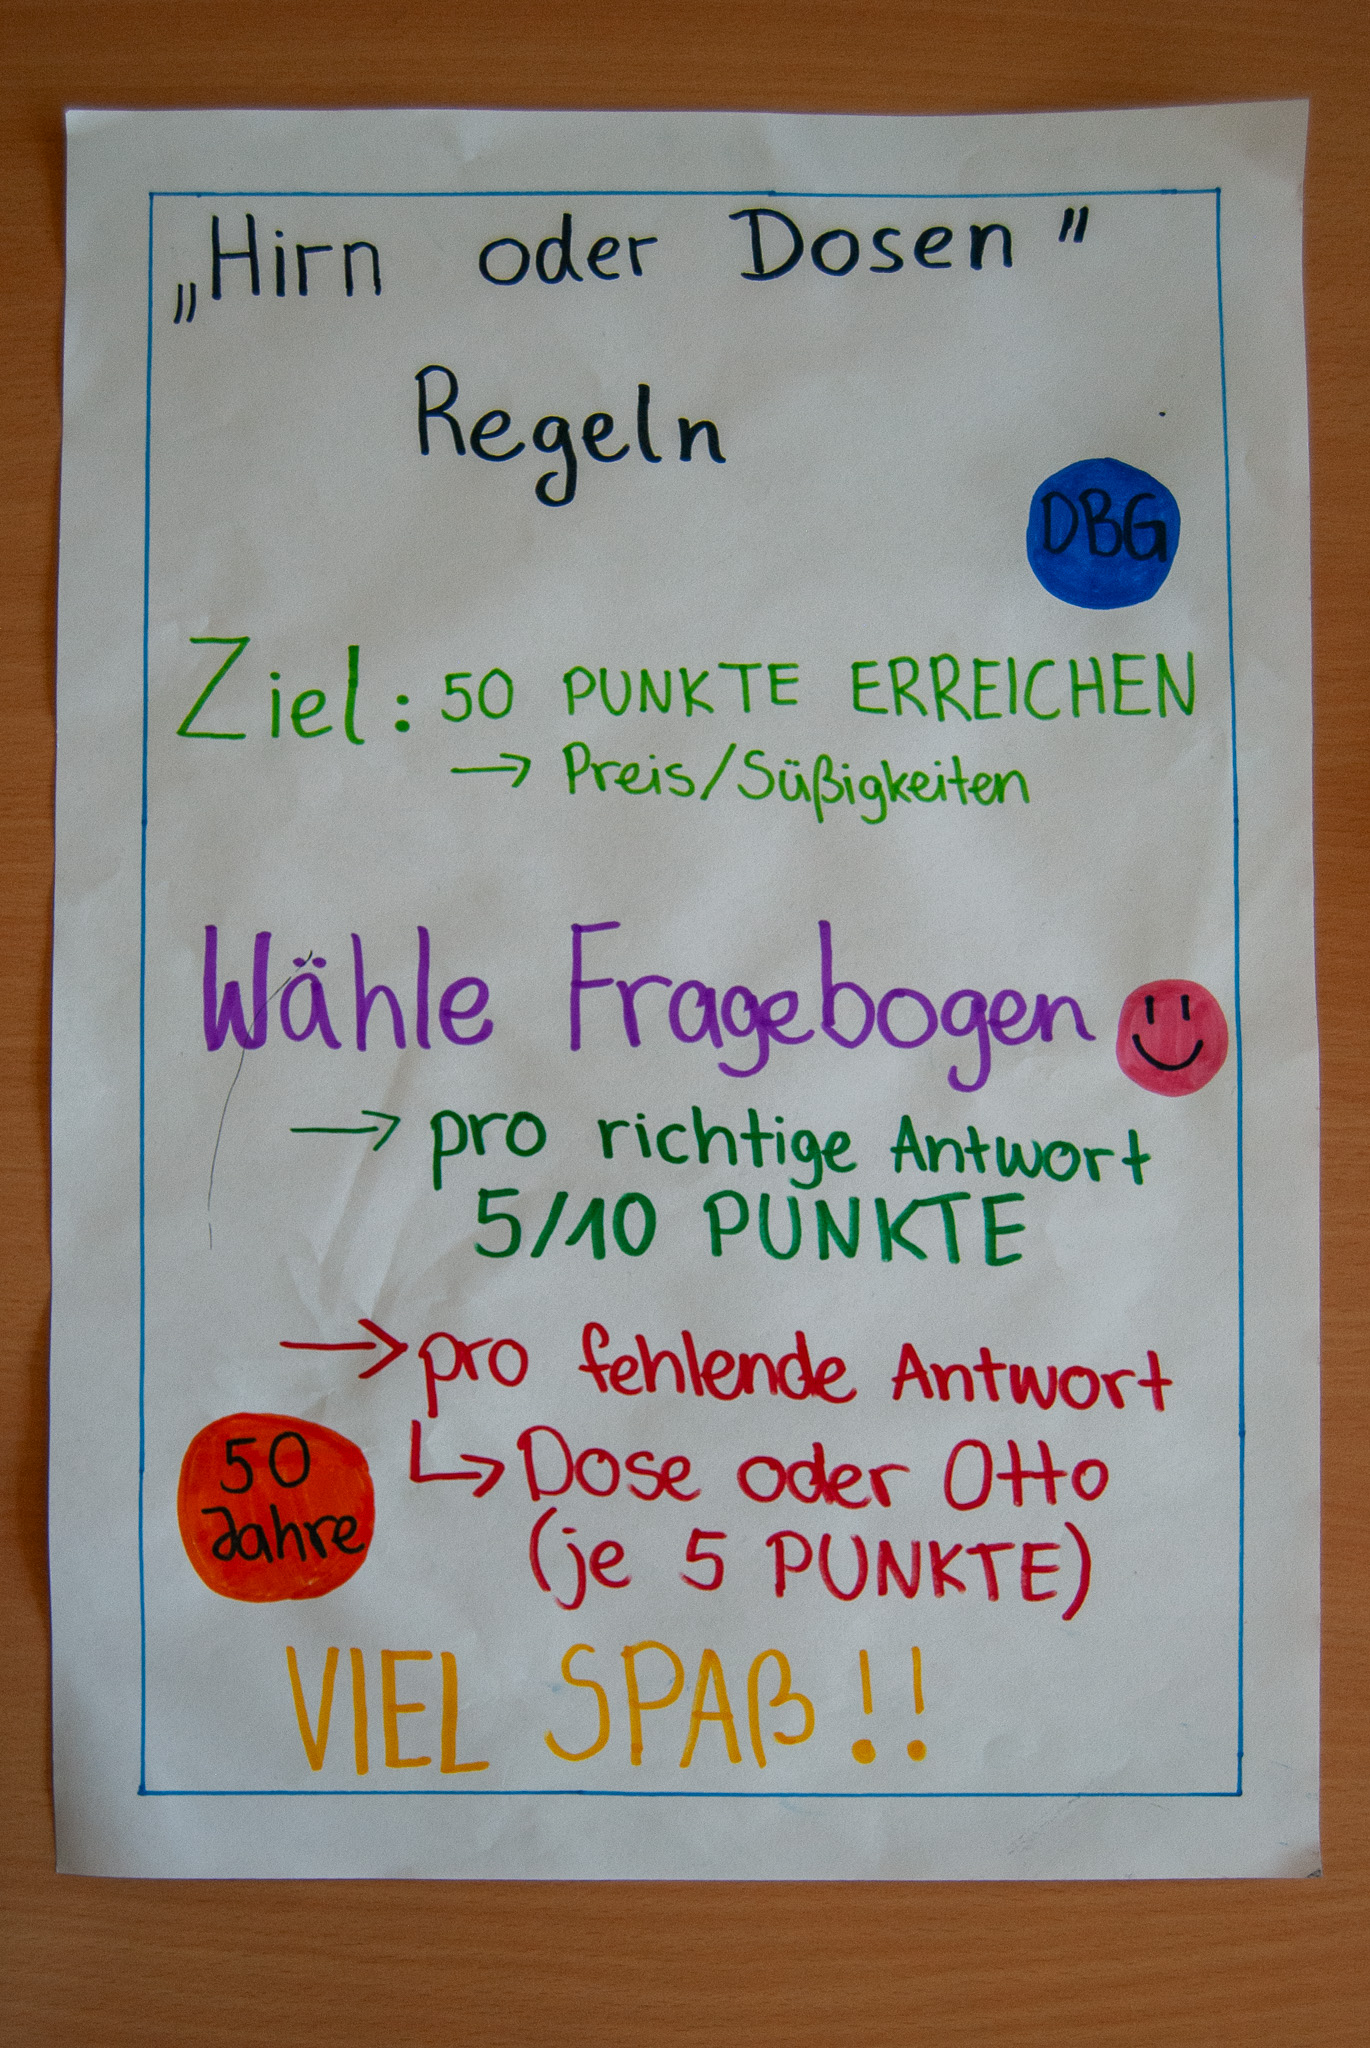 „Hirn oder Dosen"
Regeln
DBG
Ziel: 50 PUNKTE ERREICHEN
→ Preis/Süßigkeiten
Wähle Fragebogen
→ pro richtige Antwort
5/10 PUNKTE
→ pro fehlende Antwort
↳ Dose oder Otto
(je 5 PUNKTE)
50
Jahre
VIEL SPAß!!